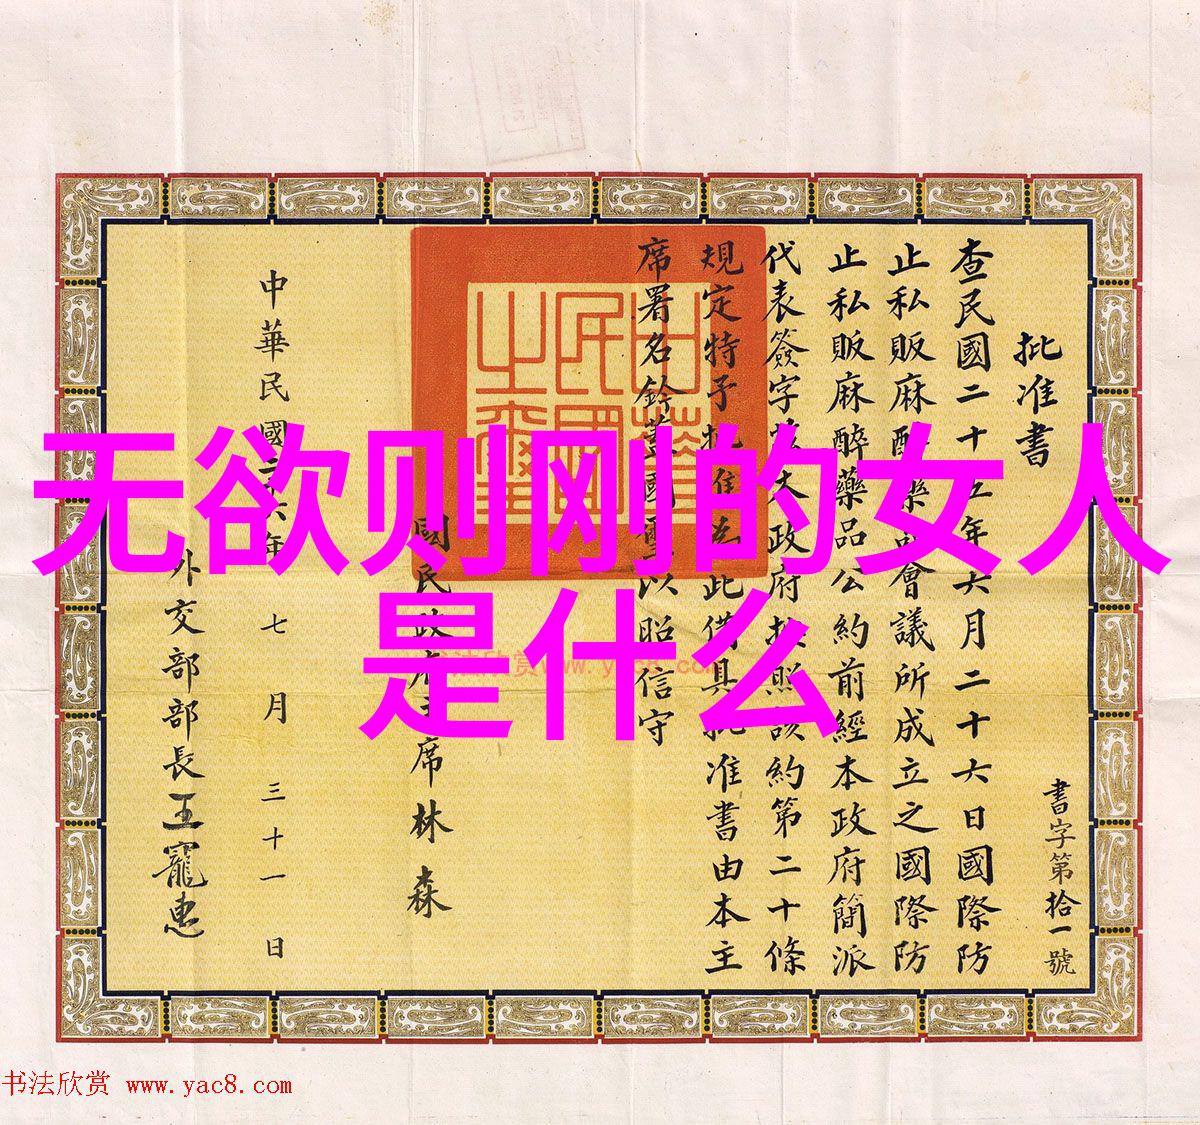 无欲则刚的女人
是什么
批准書
書字第拾一號
查民國二十五年六月二十六日國際防
止私販麻醉藥品會議所成立之國際防
止私販麻醉藥品公約前經本政府簡派
代表簽字大政府按照該約第二十條
規定特予批准為此備具批准書由本主
席署名鈐蓋國璽以昭信守
國民政府主席林森
中華民國二十六年七月三十一日
外交部部長王寵惠
中華民國之璽
书法欣赏 www.yac8.com